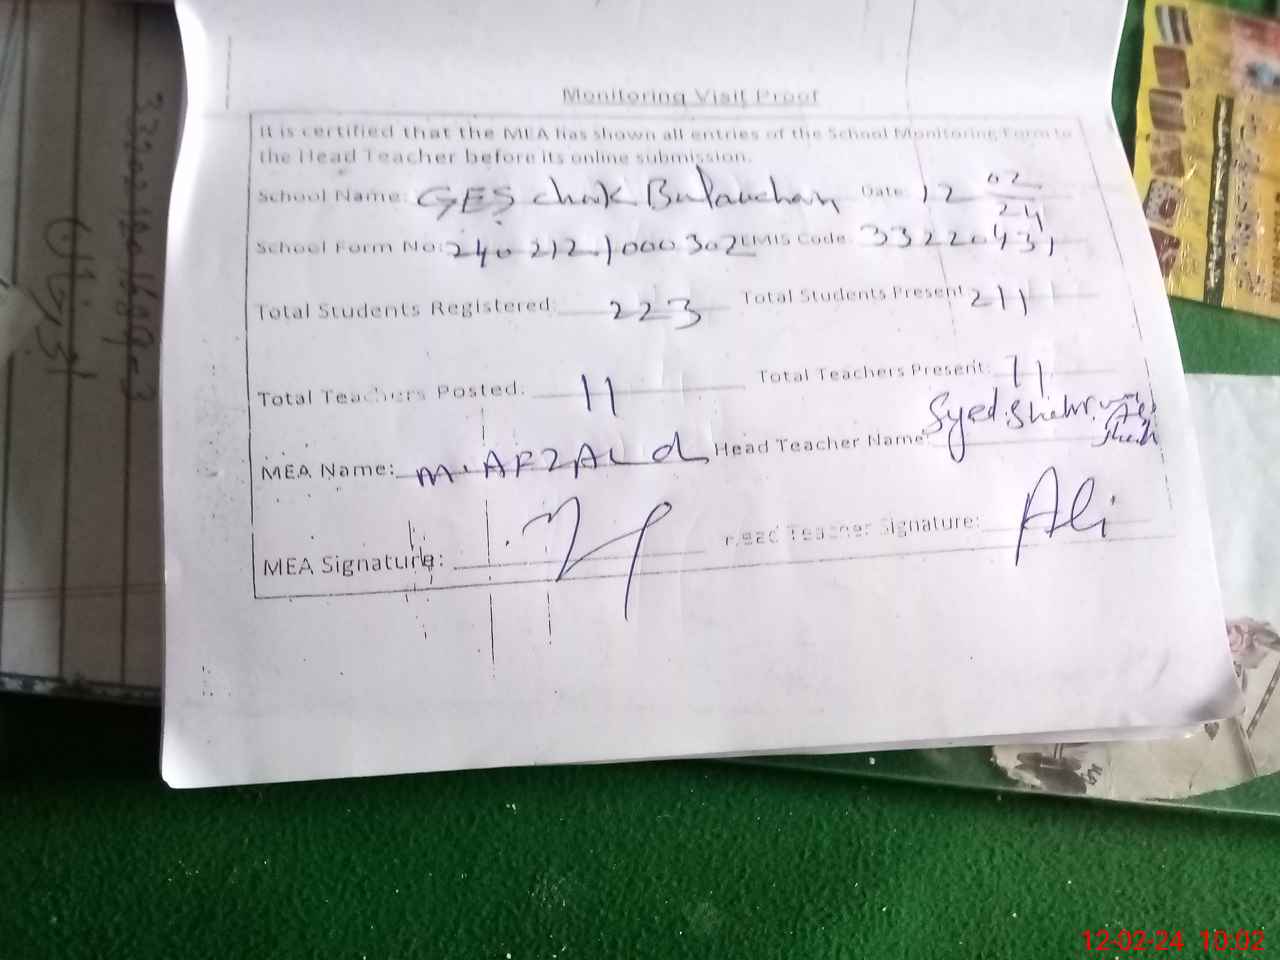 Monitoring Visit Proof
It is certified that the MEA has shown all entries of the School Monitoring Form to
the Head Teacher before its online submission.
School Name: GES chak Bulanchan Date: 12 02 24
School Form No: 2402121000302 EMIS Code: 33220431
Total Students Registered: 223 Total Students Present 211
Total Teachers Posted: 11 Total Teachers Present: 11
MEA Name: M. AFZAL Head Teacher Name: Syed
MEA Signature: Head Teacher Signature: Ali
12-02-24 10:02